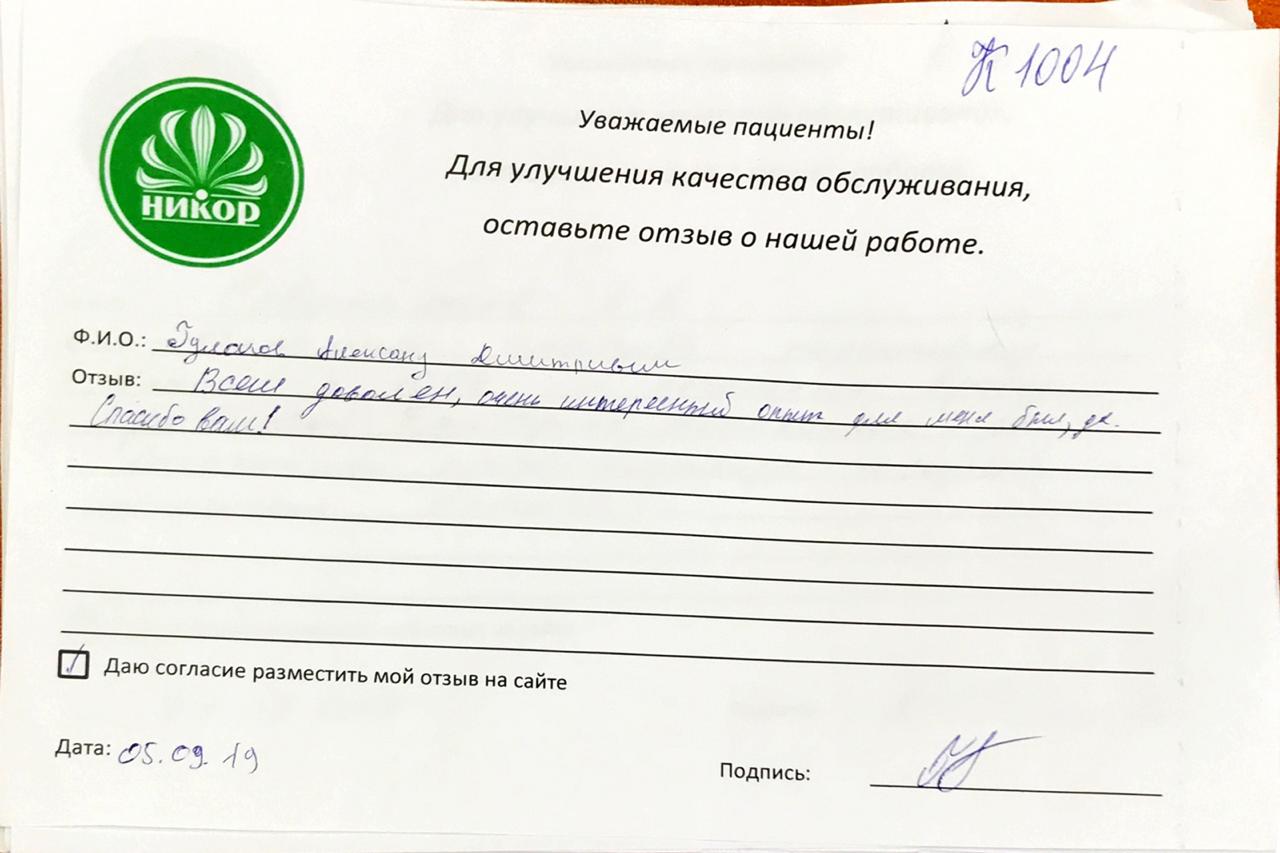 К 1004
НИКОР
Уважаемые пациенты!
Для улучшения качества обслуживания,
оставьте отзыв о нашей работе.
Ф.И.О.:
Отзыв: Всем доволен, очень интересный опыт для меня был, да.
Спасибо вам!
Даю согласие разместить мой отзыв на сайте
Дата: 05.09.19
Подпись: